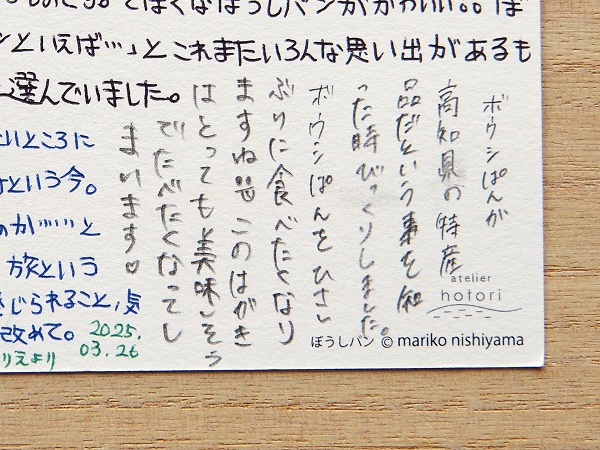 てはくなぼうしパンがかわいい。ぼ
ンといえば…」とこれまたいろんな思い出があるも
選んでいました。
いところに
という今。
のか……と
旅という
じられること、気
改めて。2025.
りえより 03.26
ボウシぱんが
高知県の特産
品だという事を知
った時びっくりしました。
ボウシぱんをひさし
ぶりに食べたくなり
ますね このはがき
はとっても美味しそう
でたべたくなってし
まいます♡
atelier
hotori
ぼうしパン © mariko nishiyama